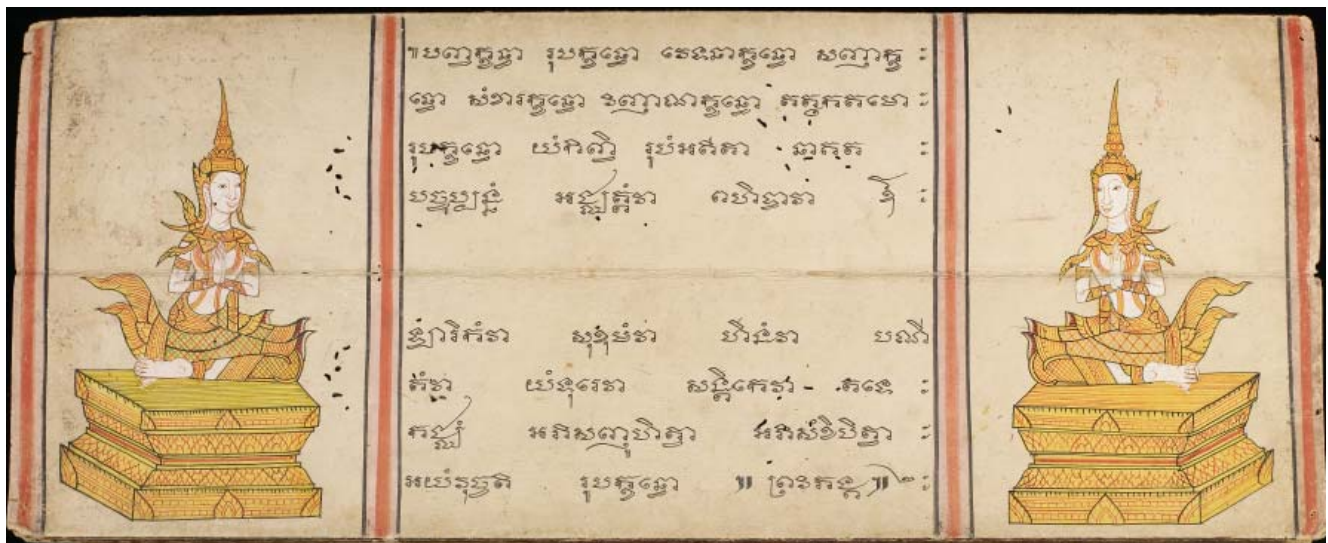 ៕បញ្ចក្ខន្ធា រូបក្ខន្ធោ វេទនាក្ខន្ធោ សញ្ញាក្ខ ៈ
ន្ធោ សំខារក្ខន្ធោ វិញ្ញាណក្ខន្ធោ តត្ថកតមោ ៈ
រូបក្ខន្ធោ យំកិញ្ចិ រូបំអតីតា នាគត ៈ
បច្ចុប្បន្នំ អជ្ឈត្តំវា ពហិទ្ធាវា ឱ ៈ
ឡារិកំវា សុខុមំវា ហីនំវា បណី
តំវា យំទូរេវា សន្តិកេវា តទេ ៈ
កជ្ឈំ អភិសញ្ញុហិត្វា អភិសំខិបិត្វា ៈ
អយំវុច្ចតិ រូបក្ខន្ធោ ៕ ព្រះ ៕ ៈ